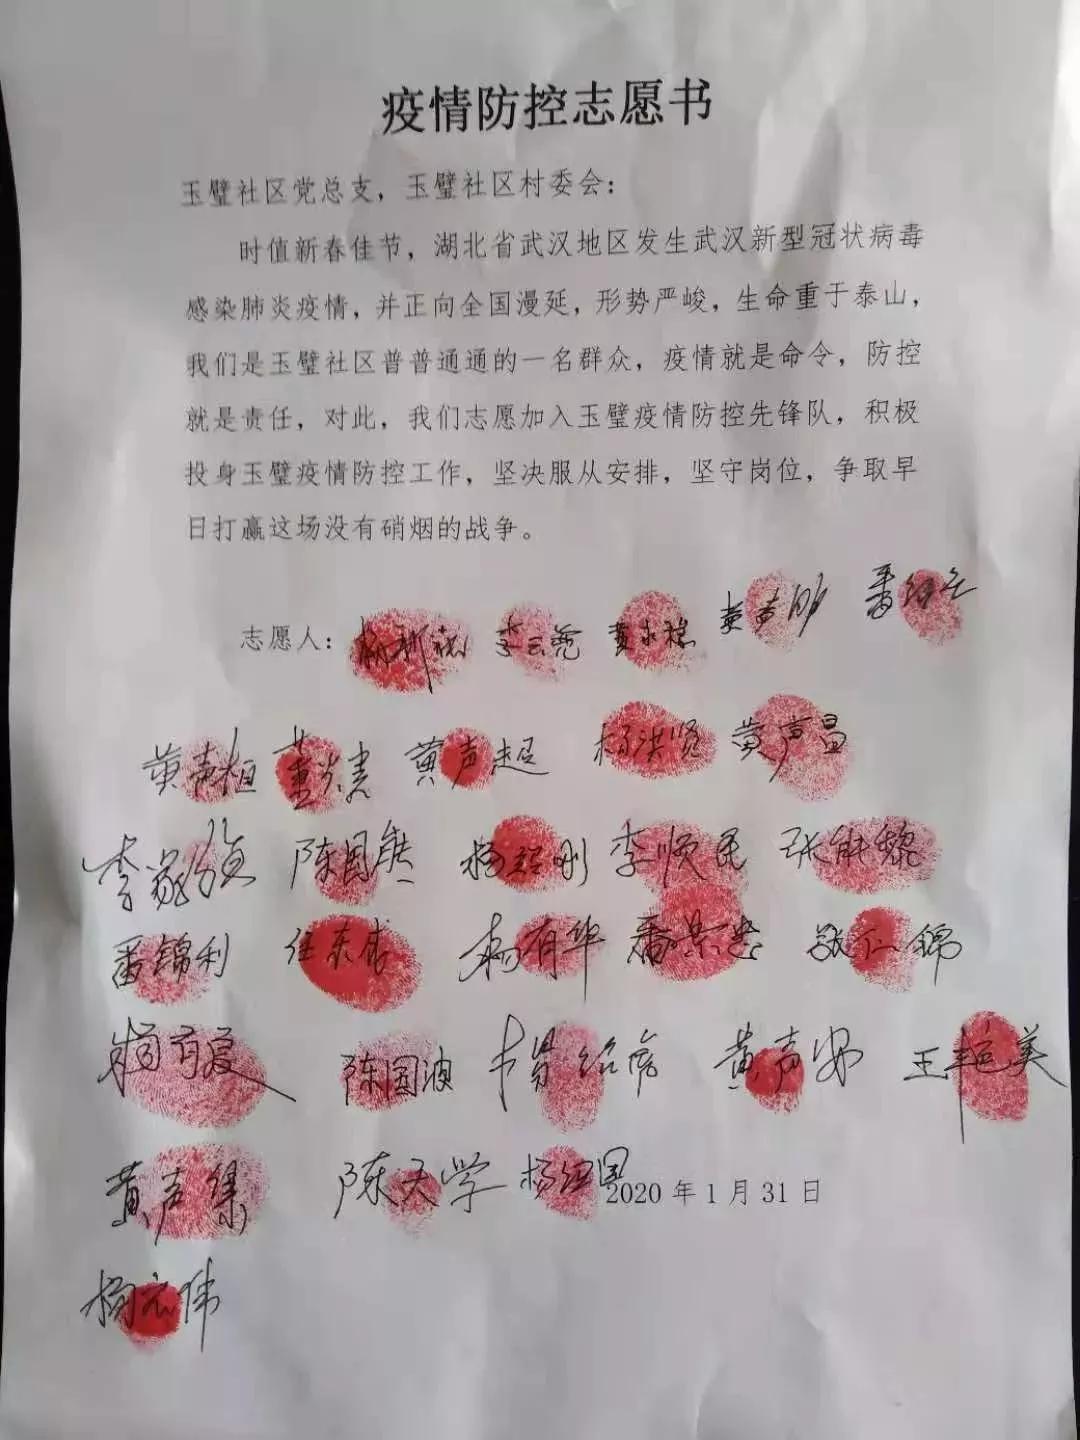 疫情防控志愿书
玉璧社区党总支，玉璧社区村委会：
时值新春佳节，湖北省武汉地区发生武汉新型冠状病毒
感染肺炎疫情，并正向全国漫延，形势严峻，生命重于泰山，
我们是玉璧社区普普通通的一名群众，疫情就是命令，防控
就是责任，对此，我们志愿加入玉璧疫情防控先锋队，积极
投身玉璧疫情防控工作，坚决服从安排，坚守岗位，争取早
日打赢这场没有硝烟的战争。
志愿人： 李云尧 黄声明
黄声旭 黄声超 杨洪贤 黄声昌
李 陈国 杨绍刚 李顺民 张能黎
番锦利 任东 杨有华 番荣忠 张仁锦
杨 陈国波 黄声 王艳美
黄声集 陈天学 杨绍国 2020 年 1 月 31 日
杨宏伟